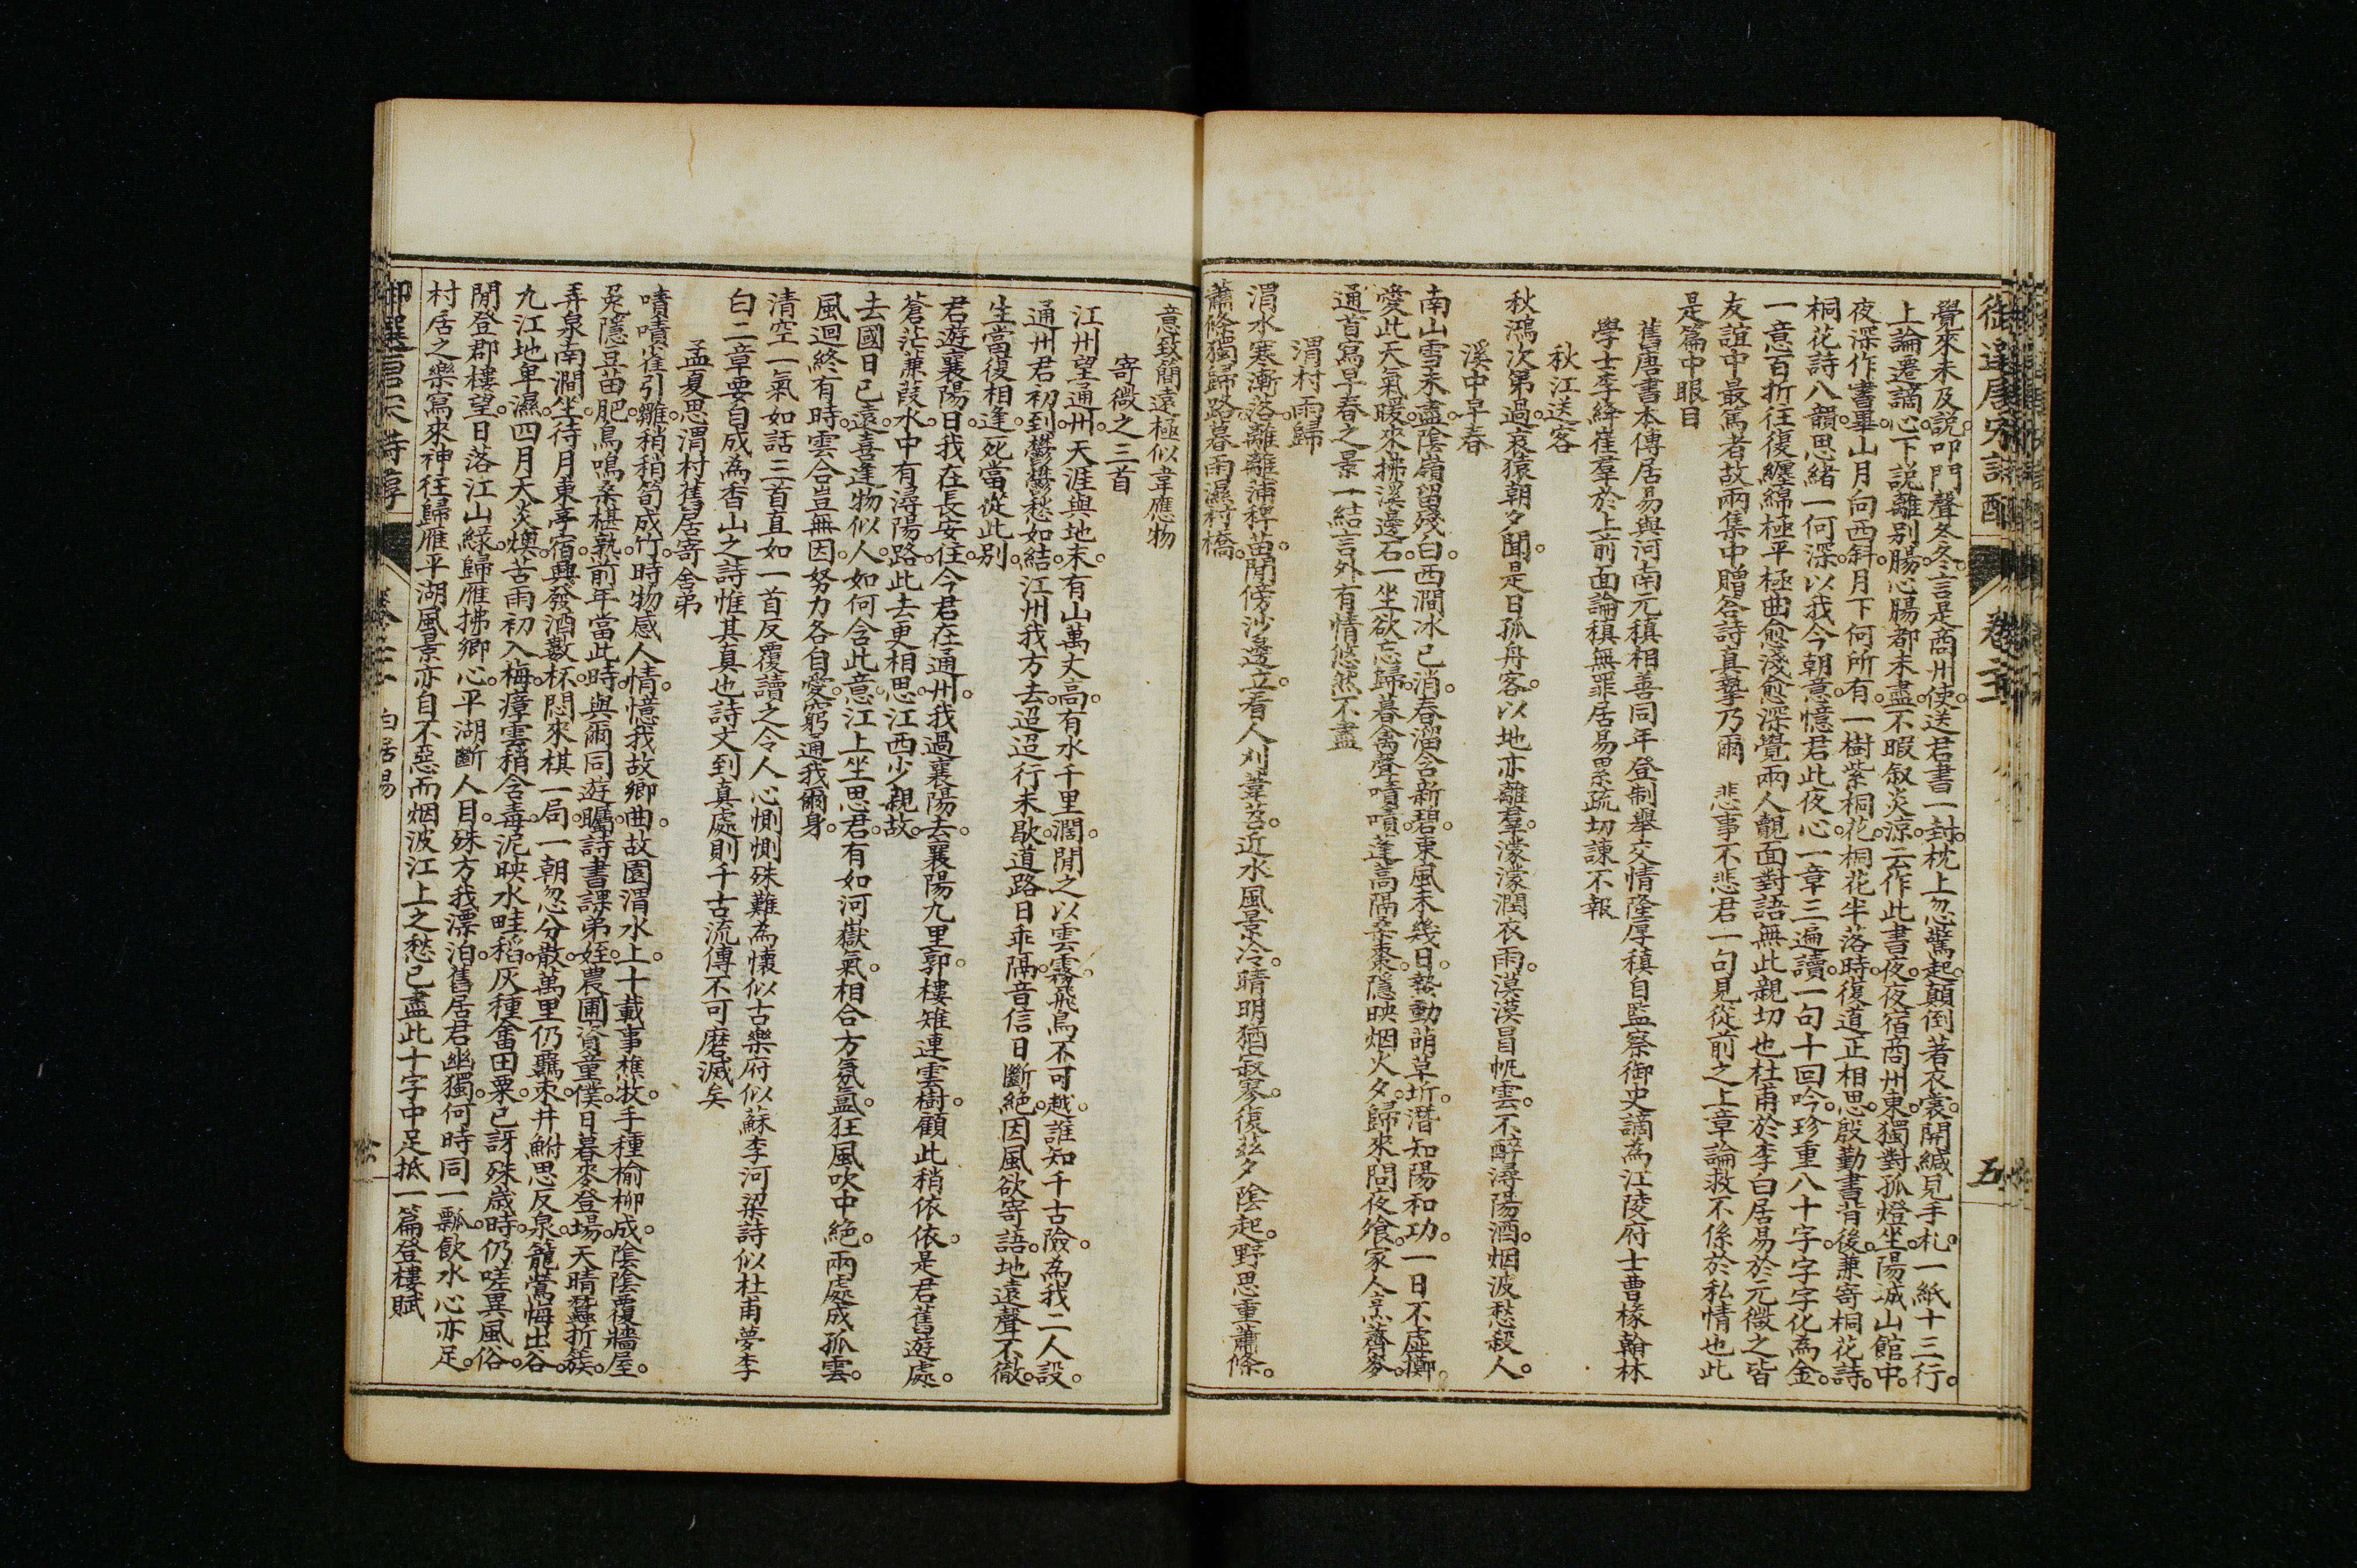 覺來未及說叩門聲冬冬言是商州使送君書一封枕上忽驚起顛倒著衣裳開緘見手札一紙十三行
上論遷謫心下說離別腸心腸都未盡不暇叙炎涼云作此書夜夜宿商州東獨對孤燈坐陽城山館中
夜深作書畢山月向西斜月下何所有一樹紫桐花桐花半落時復道正相思殷勤書背後兼寄桐花詩
桐花詩八韻思緒一何深以我今朝意憶君此夜心一章三遍讀一句十回吟珍重八十字字字化為金
一意百折往復纏綿極平極曲愈淺愈深覺兩人覿面對語無此親切也杜甫於李白居易於元微之皆
友誼中最篤者故兩集中贈答詩真摯乃爾 悲事不悲君一句見從前之上章論救不係於私情也此
是篇中眼目
舊唐書本傳居易與河南元稹相善同年登制舉交情隆厚稹自監察御史謫為江陵府士曹椽翰林
學士李絳崔羣於上前面論稹無罪居易累疏切諫不報
秋江送客
秋鴻次第過哀猿朝夕聞是日孤舟客以地亦離羣濛濛潤衣雨漠漠冒帆雲不醉潯陽酒烟波愁殺人
溪中早春
南山雪未盡陰嶺留殘白西澗冰已消春溜含新碧東風來幾日蟄動萌草坼潛知陽和功一日不虛擲
愛此天氣暖來拂溪邊石一坐欲忘歸暮禽聲嘖嘖蓬高隔桑棗隱映烟火夕歸來問夜飡家人烹薺麥
通首寫早春之景一結言外有情悠然不盡
渭村雨歸
渭水寒漸落離離蒲稗苗閒傍沙邊立看人刈葦苕近水風景冷晴明猶寂寥復茲夕陰起野思重蕭條
蕭條獨歸路暮雨濕村橋
意致簡遠極似韋應物
寄微之三首
江州望通州天涯與地末有山萬丈高有水千里濶閒之以雲霧飛鳥不可越誰知千古險為我二人設
通州君初到鬱鬱愁如結江州我方去迢迢行未歇道路日乖隔音信日斷絕因風欲寄語地遠聲不徹
生當復相逢死當從此別
君遊襄陽日我在長安住今君在通州我過襄陽去襄陽九里郭樓雉連雲樹顧此稍依依是君舊遊處
蒼茫蒹葭水中有潯陽路此去更相思江西少親故
去國日已遠喜逢物似人如何含此意江上坐思君有如河嶽氣相合方氛氳狂風吹中絕兩處成孤雲
風迴終有時雲合豈無因努力各自愛窮通我爾身
清空一氣如話三首直如一首反覆讀之令人心惻惻殊難為懷似古樂府似蘇李河梁詩似杜甫夢李
白二章要自成為香山之詩惟其真也詩文到真處則千古流傳不可磨滅矣
孟夏思渭村舊居寄舍弟
嘖嘖雀引雛稍稍筍成竹時物感人情憶我故鄉曲故園渭水上十載事樵牧手種榆柳成陰陰覆牆屋
兎隱豆苗肥鳥鳴桑椹熟前年當此時與爾同遊矚詩書課弟姪農圃資童僕日暮麥登場天晴蠶折簇
弄泉南澗坐待月東亭宿興發酒數杯悶來棋一局一朝忽分散萬里仍覊束井鮒思反泉籠鶯悔出谷
九江地卑濕四月天炎燠苦雨初入梅瘴雲稍含毒泥映水畦稻灰種畬田粟已訝殊歲時仍嗟異風俗
閒登郡樓望日落江山綠歸雁拂鄉心平湖斷人目殊方我漂泊舊居君幽獨何時同一瓢飲水心亦足
村居之樂寫來神往歸雁平湖風景亦自不惡而烟波江上之愁已盡此十字中足抵一篇登樓賦
白居易